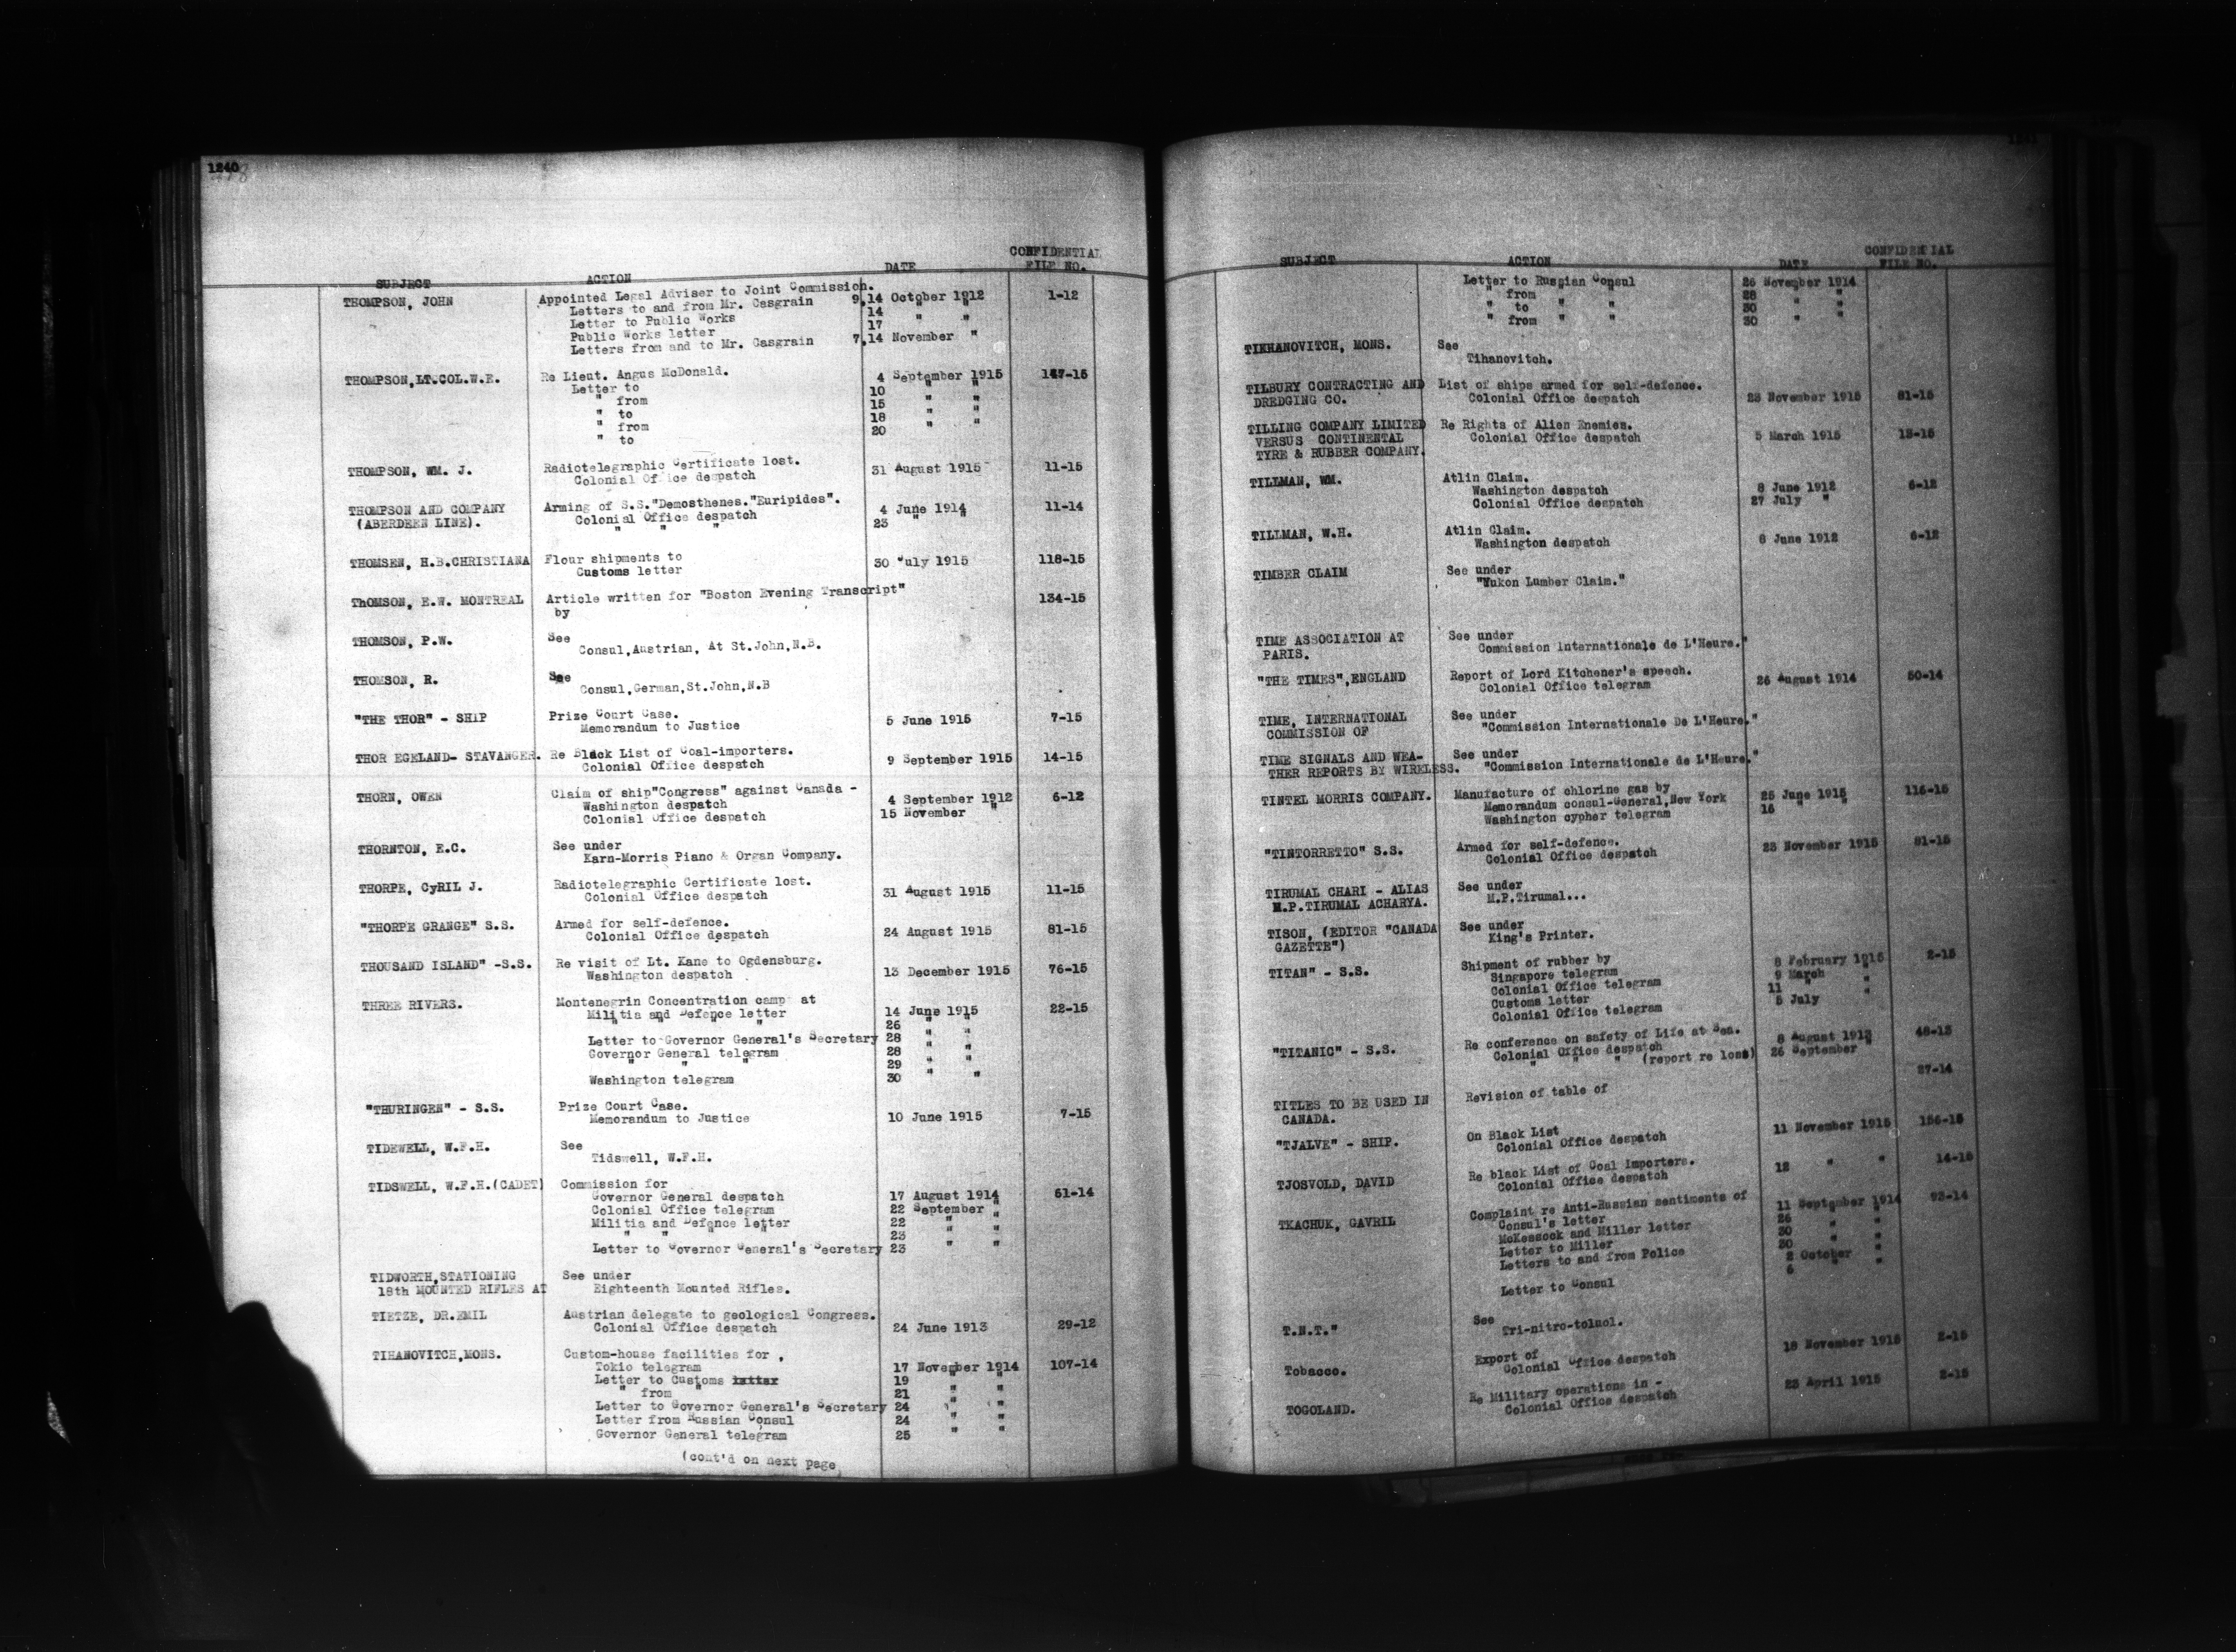 1240
SUBJECT ACTION DATE CONFIDENTIAL FILE NO.
THOMPSON, JOHN Appointed Legal Adviser to Joint Commission. 1-12
Letters to and from Mr. Casgrain 9,14 October 1912
Letter to Public Works 14 " "
Public Works letter 17
Letters from and to Mr. Casgrain 7,14 November "
THOMPSON,LT.COL.W.E. Re Lieut. Angus McDonald. 147-15
Letter to 4 September 1915
" from 10 " "
" to 15 " "
" from 18 " "
" to 20 " "
THOMPSON, WM. J. Radiotelegraphic Certificate lost. 11-15
Colonial Office despatch 31 August 1915
THOMPSON AND COMPANY Arming of S.S."Demosthenes."Euripides". 11-14
(ABERDEEN LINE). Colonial Office despatch 4 June 1914
" " " 23 " "
THOMSEN, H.B.CHRISTIANA Flour shipments to 118-15
Customs letter 30 July 1915
ThOMSON, E.W. MONTREAL Article written for "Boston Evening Transcript" 134-15
by
THOMSON, P.W. See
Consul,Austrian, At St.John,N.B.
THOMSON, R. See
Consul,German,St.John,N.B
"THE THOR" - SHIP Prize Court Case.
Memorandum to Justice 5 June 1915 7-15
THOR EGELAND- STAVANGER. Re Black List of Coal-importers.
Colonial Office despatch 9 September 1915 14-15
THORN, OWEN Claim of ship"Congress" against Canada -
Washington despatch 4 September 1912 6-12
Colonial Office despatch 15 November "
THORNTON, E.C. See under
Karn-Morris Piano & Organ Company.
THORPE, CyRIL J. Radiotelegraphic Certificate lost.
Colonial Office despatch 31 August 1915 11-15
"THORPE GRANGE" S.S. Armed for self-defence.
Colonial Office despatch 24 August 1915 81-15
THOUSAND ISLAND" -S.S. Re visit of Lt. Kane to Ogdensburg.
Washington despatch 13 December 1915 76-15
THREE RIVERS. Montenegrin Concentration camp at
Militia and Defence letter 14 June 1915 22-15
" " " " 26 " "
Letter to Governor General's Secretary 28 " "
Governor General telegram 28 " "
" " " 29 " "
Washington telegram 30 " "
"THURINGEN" - S.S. Prize Court Case.
Memorandum to Justice 10 June 1915 7-15
TIDEWELL, W.F.H. See
Tidswell, W.F.H.
TIDSWELL, W.F.H.(CADET) Commission for
Governor General despatch 17 August 1914 51-14
Colonial Office telegram 22 September "
Militia and Defence letter 22 " "
" " " " 23 " "
Letter to Governor General's Secretary 23 " "
TIDWORTH,STATIONING See under
18th MOUNTED RIFLES AT Eighteenth Mounted Rifles.
TIETZE, DR.EMIL Austrian delegate to geological Congress.
Colonial Office despatch 24 June 1913 29-12
TIHANOVITCH,MONS. Custom-house facilities for ,
Tokio telegram 17 November 1914 107-14
Letter to Customs letter 19 " "
" from " 21 " "
Letter to Governor General's Secretary 24 " "
Letter from Russian Consul 24 " "
Governor General telegram 25 " "
(cont'd on next page
SUBJECT ACTION DATE CONFIDENTIAL FILE NO.
Letter to Russian Consul 26 November 1914
" from " " 28 " "
" to " " 30 " "
" from " " 30 " "
TIKHANOVITCH, MONS. See
Tihanovitch.
TILBURY CONTRACTING AND List of ships armed for self-defence.
DREDGING CO. Colonial Office despatch 23 November 1915 81-15
TILLING COMPANY LIMITED Re Rights of Alien Enemies.
VERSUS CONTINENTAL Colonial Office despatch 5 March 1915 13-15
TYRE & RUBBER COMPANY.
TILLMAN, WM. Atlin Claim.
Washington despatch 8 June 1912 6-12
Colonial Office despatch 27 July "
TILLMAN, W.H. Atlin Claim.
Washington despatch 8 June 1912 6-12
TIMBER CLAIM See under
"Yukon Lumber Claim."
TIME ASSOCIATION AT See under
PARIS. Commission Internationale de L'Heure."
"THE TIMES",ENGLAND Report of Lord Kitchener's speech.
Colonial Office telegram 26 August 1914 50-14
TIME, INTERNATIONAL See under
COMMISSION OF "Commission Internationale De L'Heure."
TIME SIGNALS AND WEA- See under
THER REPORTS BY WIRELESS. "Commission Internationale de L'Heure."
TINTEL MORRIS COMPANY. Manufacture of chlorine gas by
Memorandum consul-General,New York 25 June 1915 115-15
Washington cypher telegram 16 " "
"TINTORRETTO" S.S. Armed for self-defence.
Colonial Office despatch 23 November 1915 81-15
TIRUMAL CHARI - ALIAS See under
M.P.TIRUMAL ACHARYA. M.P.Tirumal...
TISON, (EDITOR "CANADA See under
GAZETTE") King's Printer.
TITAN" - S.S. Shipment of rubber by 2-15
Singapore telegram 8 February 1915
Colonial Office telegram 9 March "
Customs letter 11 " "
Colonial Office telegram 5 July "
"TITANIC" - S.S. Re conference on safety of Life at Sea. 48-13
Colonial Office despatch 8 August 1913
" " " (report re loss) 26 September "
TITLES TO BE USED IN Revision of table of 27-14
CANADA.
"TJALVE" - SHIP. On Black List
Colonial Office despatch 11 November 1915 156-15
TJOSVOLD, DAVID Re black List of Coal Importers.
Colonial Office despatch 12 " " 14-15
TKACHUK, GAVRIL Complaint re Anti-Russian sentiments of 93-14
Consul's letter 11 September 1914
McKessock and Miller letter 26 " "
Letter to Miller 30 " "
Letters to and from Police 30 " "
2 October "
Letter to Consul 6 " "
T.N.T." See
Tri-nitro-toluol.
Tobacco. Export of
Colonial Office despatch 18 November 1915 2-15
TOGOLAND. Re Military operations in -
Colonial Office despatch 23 April 1915 2-15